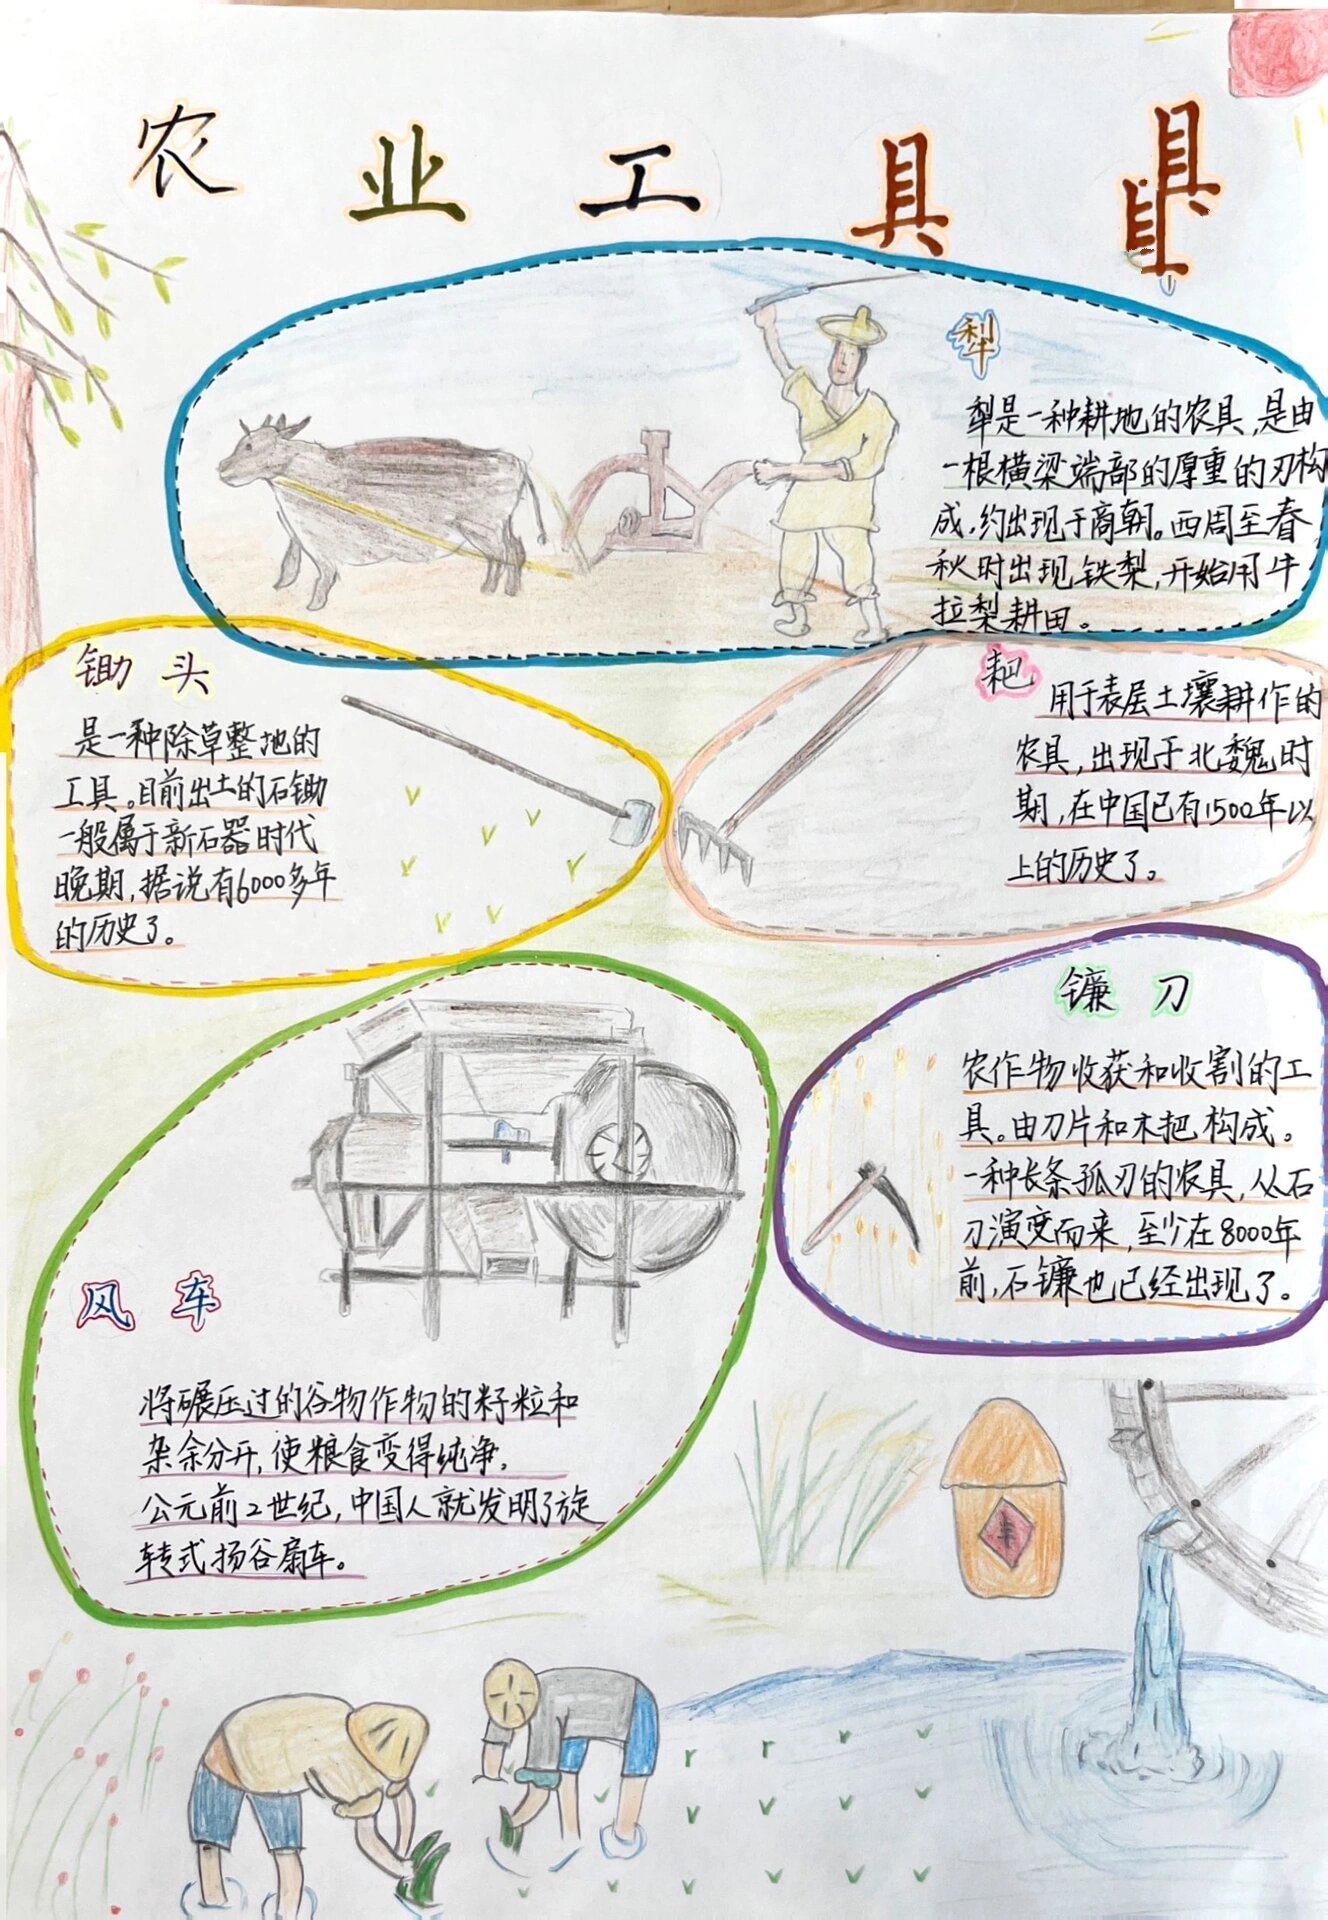 农业工具
犁
犁是一种耕地的农具,是由
一根横梁端部的厚重的刃构
成,约出现于商朝。西周至春
秋时出现铁梨,开始用牛
拉梨耕田。
锄头
是一种除草整地的
工具。目前出土的石锄
一般属于新石器时代
晚期,据说有6000多年
的历史了。
耙
用于表层土壤耕作的
农具,出现于北魏时
期,在中国已有1500年以
上的历史了。
镰刀
农作物收获和收割的工
具。由刀片和木把构成。
一种长条孤刃的农具,从石
刀演变而来,至少在8000年
前,石镰也已经出现了。
风车
将碾压过的谷物作物的籽粒和
杂余分开,使粮食变得纯净。
公元前2世纪,中国人就发明了旋
转式扬谷扇车。